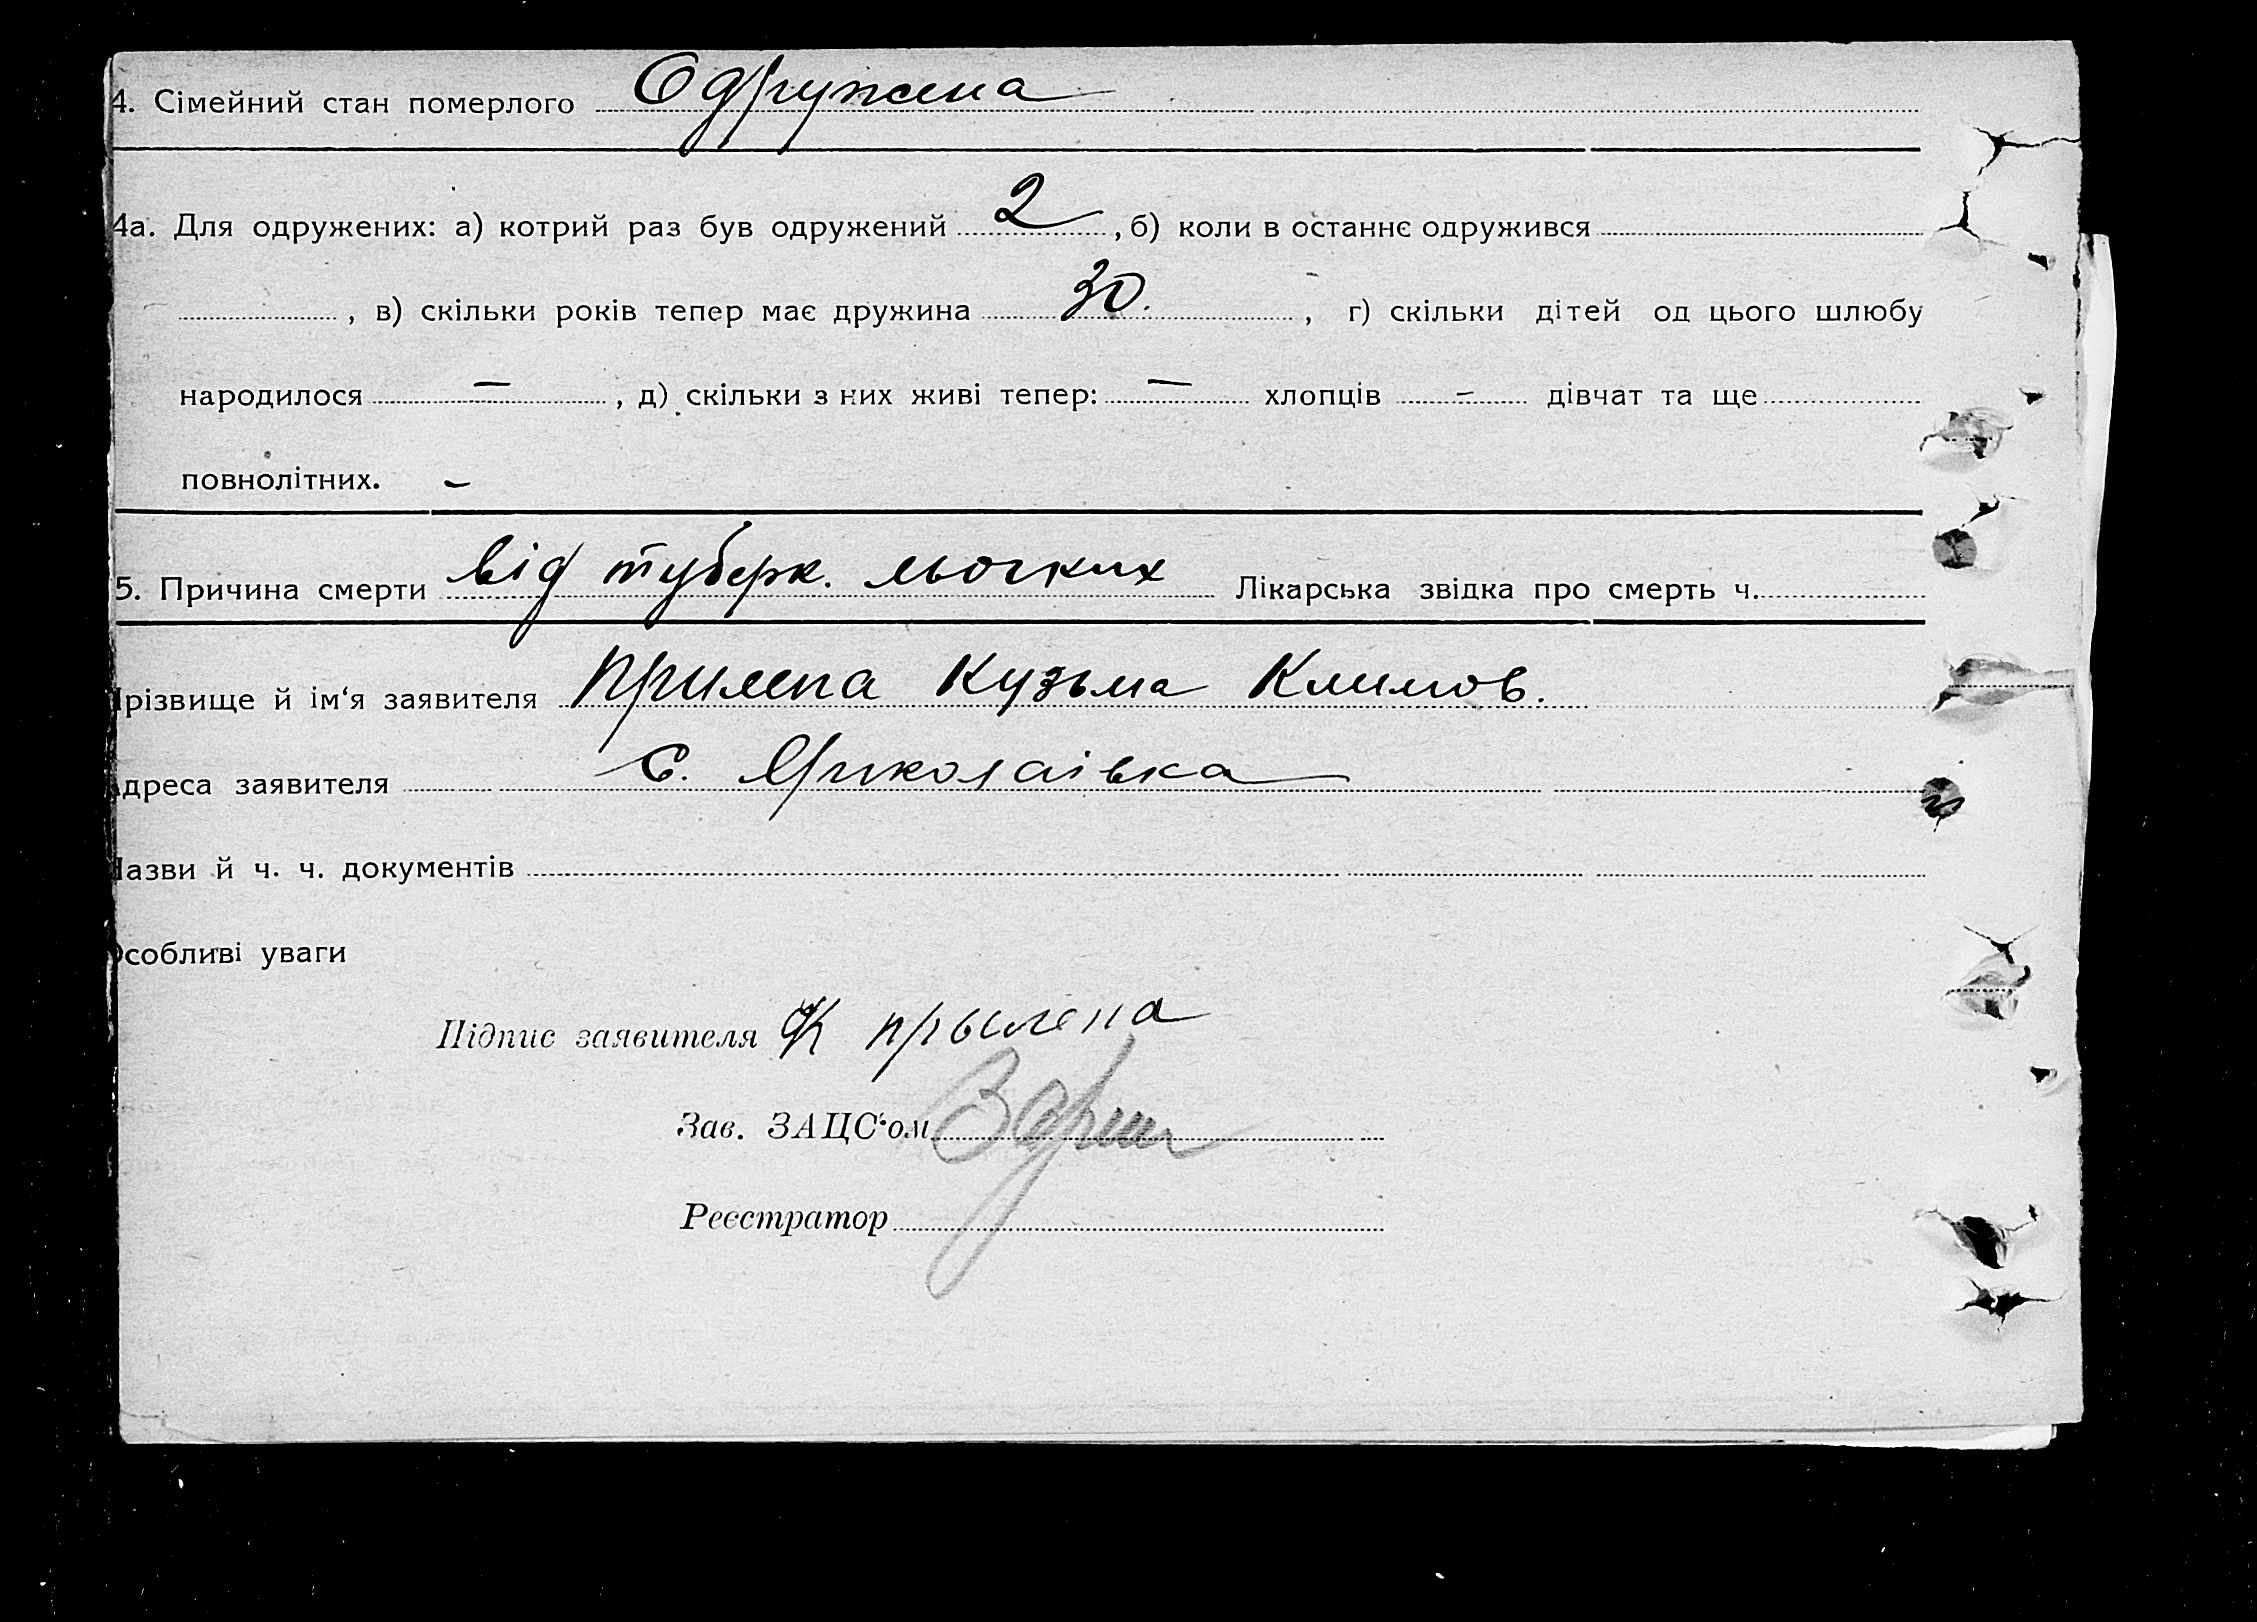 4. Сімейний стан померлого Одружена
4а. Для одружених: а) котрий раз був одружений 2, б) коли в останнє одружився
, в) скільки років тепер має дружина 30. , г) скільки дітей од цього шлюбу
народилося — , д) скільки з них живі тепер: — хлопців - дівчат та ще
повнолітних. -
5. Причина смерти від туберк. льогких Лікарська звідка про смерть ч.
Прізвище й ім‘я заявителя Прилепа Кузьма Климов.
Адреса заявителя с. Миколаівка
Назви й ч. ч. документів
Особливі уваги
Підпис заявителя К прылепа
Зав. ЗАЦС‘ом
Реєстратор